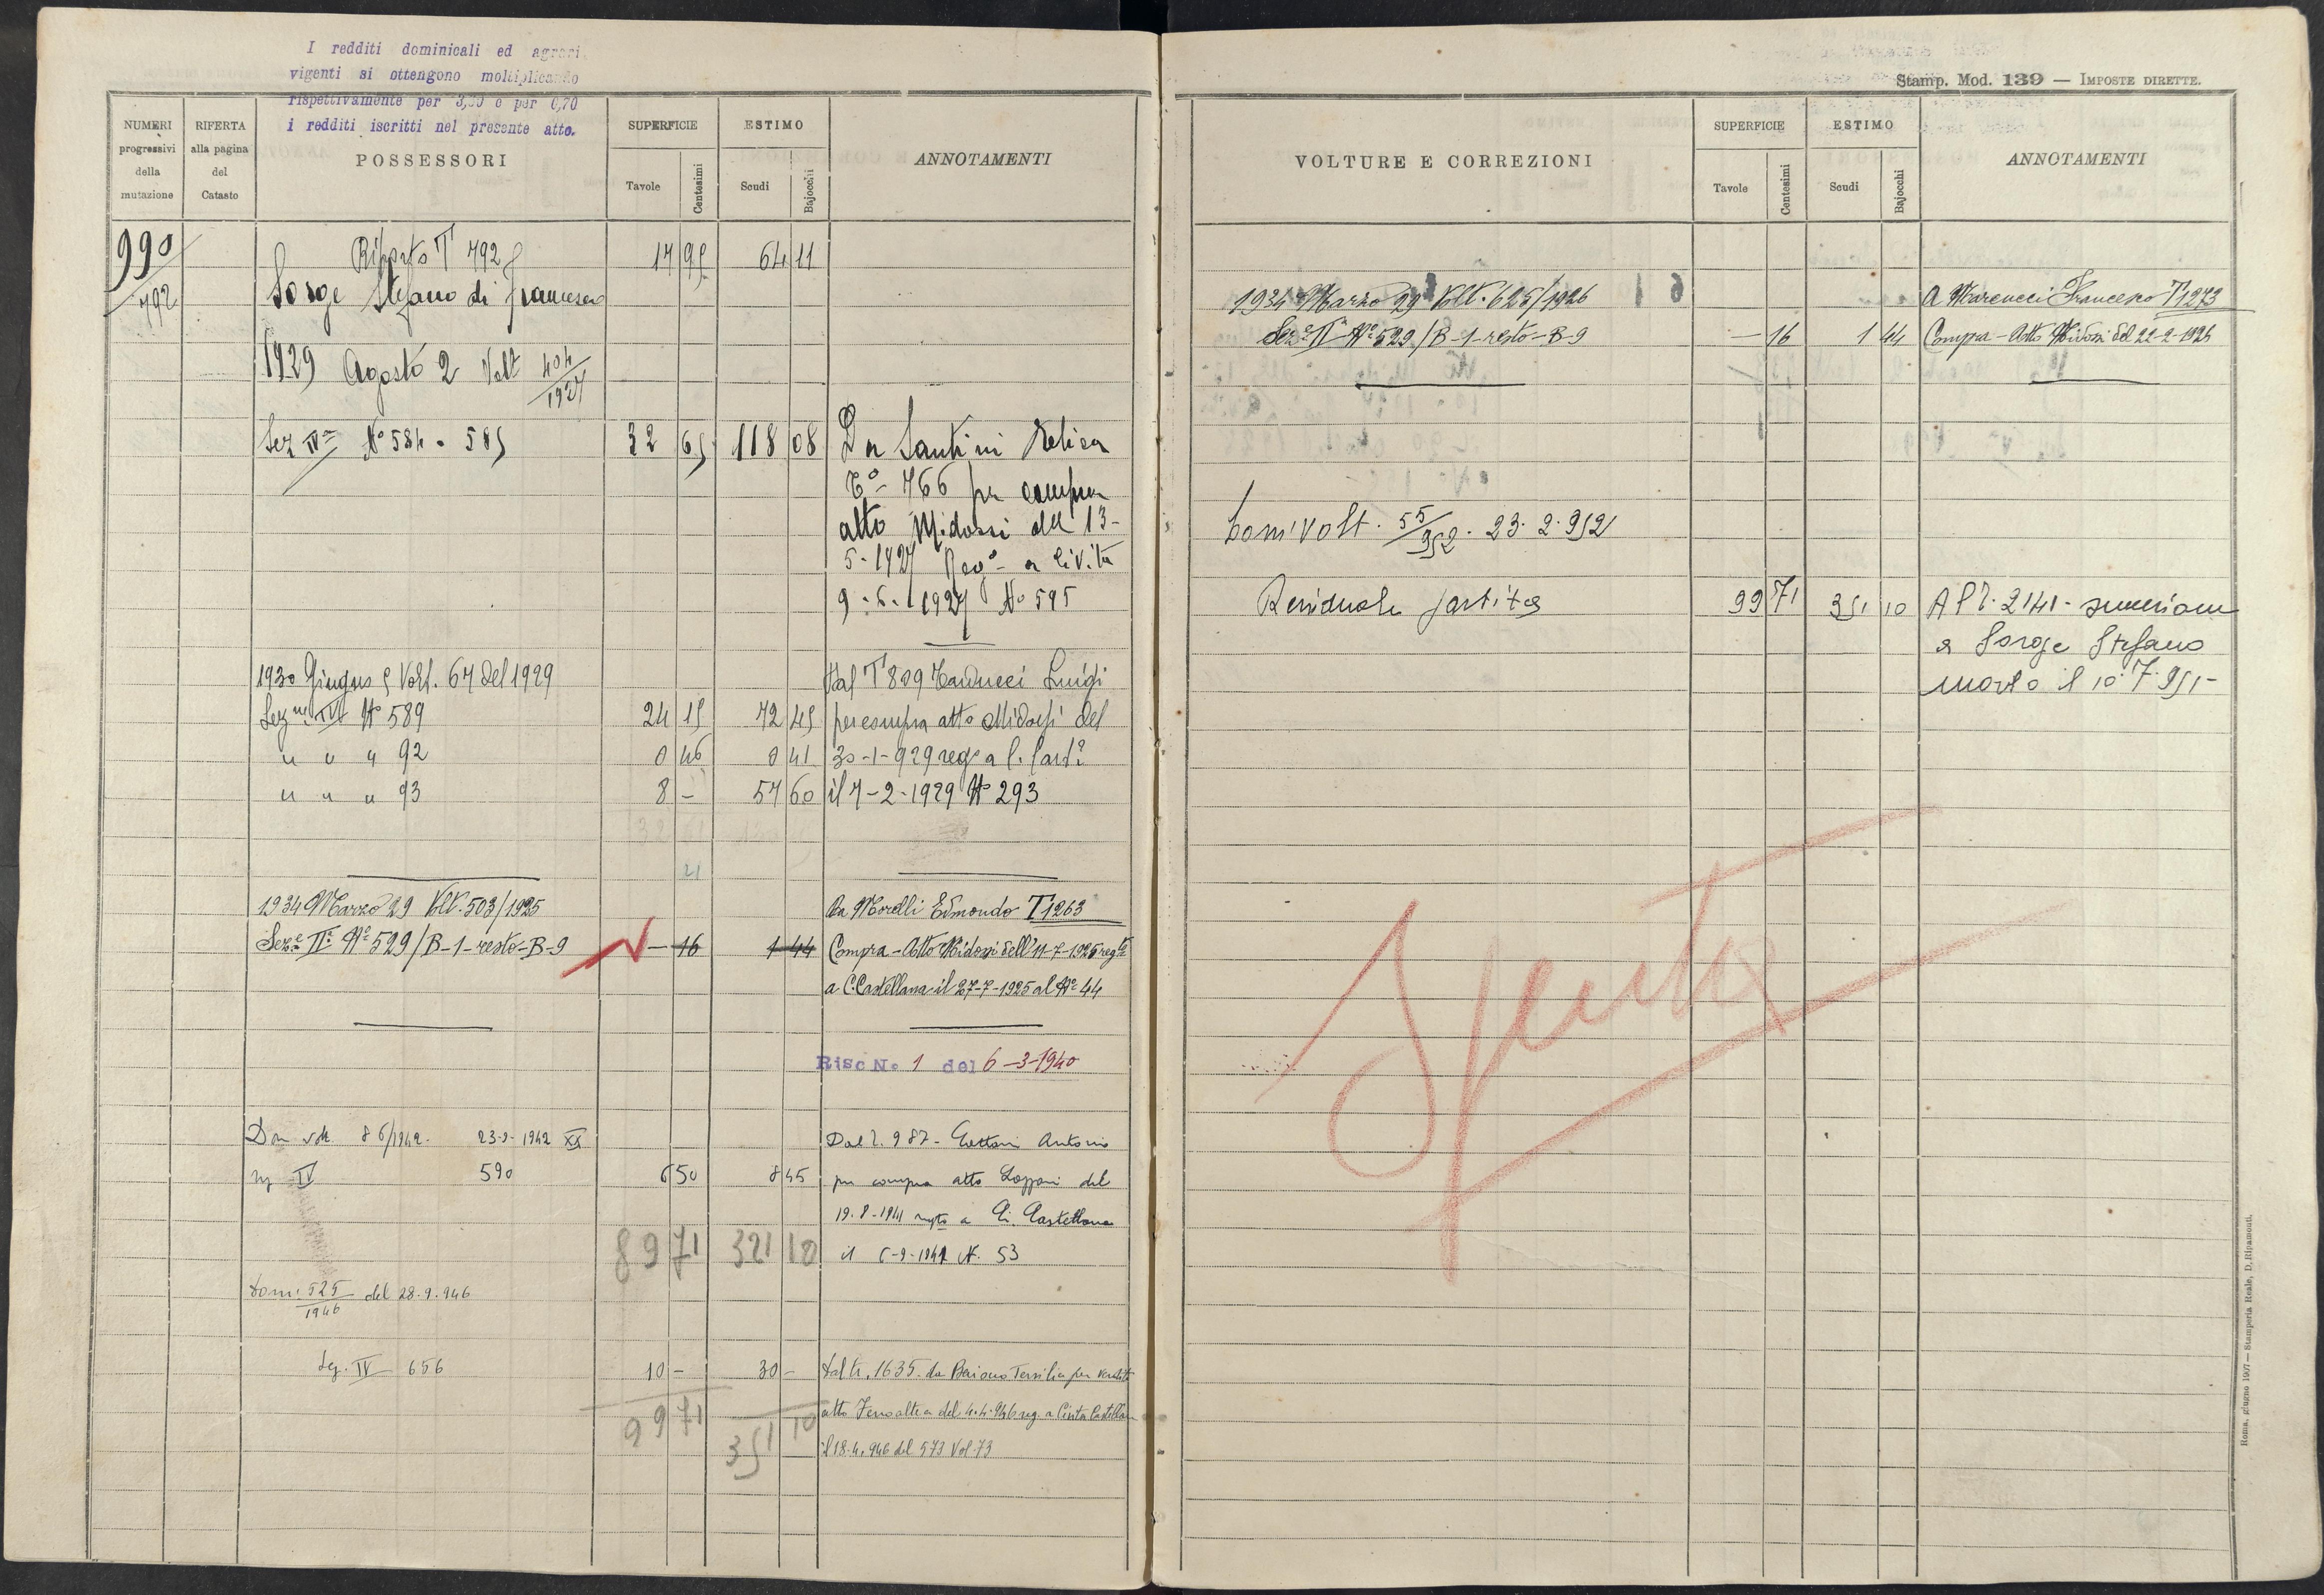 I redditi dominicali ed agrari
vigenti si ottengono moltiplicando
rispettivamente per 3,50 e per 0,70
i redditi iscritti nel presente atto.
NUMERI progressivi della mutazione
RIFERTA alla pagina del Catasto
POSSESSORI
SUPERFICIE
Tavole
Centesimi
ESTIMO
Scudi
Bajocchi
ANNOTAMENTI
990
792
Riporto T 792
17 95 64 11
Sorge Stefano di Francesco
1929 Agosto 2 Volt 404/1927
Sez IVª Nº 584 - 585 32 65 118 08 Da Santini
Tº 766 per compra
atto Midossi del 13-
5-1927 Regº a Civita
9.6.1927 Nº 595
1930 Giugno 5 Volt. 67 del 1929 Dal T 809 Carducci Luigi
Sezne IV Nº 589 24 15 72 45 per compra atto Midossi del
" " " 92 0 46 0 41 30-1-929 rega C. Castª
" " " 93 8 - 57 60 il 7-2-1929 Nº 293
21
1934 Marzo 29 Volt. 503/1925 Da Morelli Edmondo T 1263
Seze IIª Nº 529/B-1-resto-B-9 - 16 1 44 Compra - Atto Midossi dell'11-7-1925 regto
a C. Castellana il 27-7-1925 al Nº 44
Risc No 1 del 6-3-1940
Dom volt 86/1942. 23-9-1942 XX Dal T. 987- Antonio
sez IV 590 6 50 8 45 per compra atto del
19.8-1941 regto a Ci. Castellana
89 71 321 10 il 6-9-1941 N. 53
Dom. 525/1946 del 28.9.946
Sez. IV 656 10 - 30 - Dal tr. 1635 da Baiocco Tersilia per vendita
atto del 4.4.946 reg. a Civita Castellana
99 71 351 10
il 18.4.946 del 573 Vol 73
Stamp. Mod. 139 — IMPOSTE DIRETTE.
VOLTURE E CORREZIONI
SUPERFICIE
Tavole
Centesimi
ESTIMO
Scudi
Bajocchi
ANNOTAMENTI
1934 Marzo 29 Volt. 625/1926 A Marcucci Francesco T 1273
Seze IIª Nº 529/B-1-resto-B-9 - 16 1 44 Compra - Atto Midossi del 22-2-1926
Dom. Volt. 55/952. 23.2.952
Residuale partita 99 71 351 10 Al T. 2141 - successione
a Sorge Stefano
morto il 10.7.951-
Spenta
Roma, giugno 1907 — Stamperia Reale, D. Ripamonti.